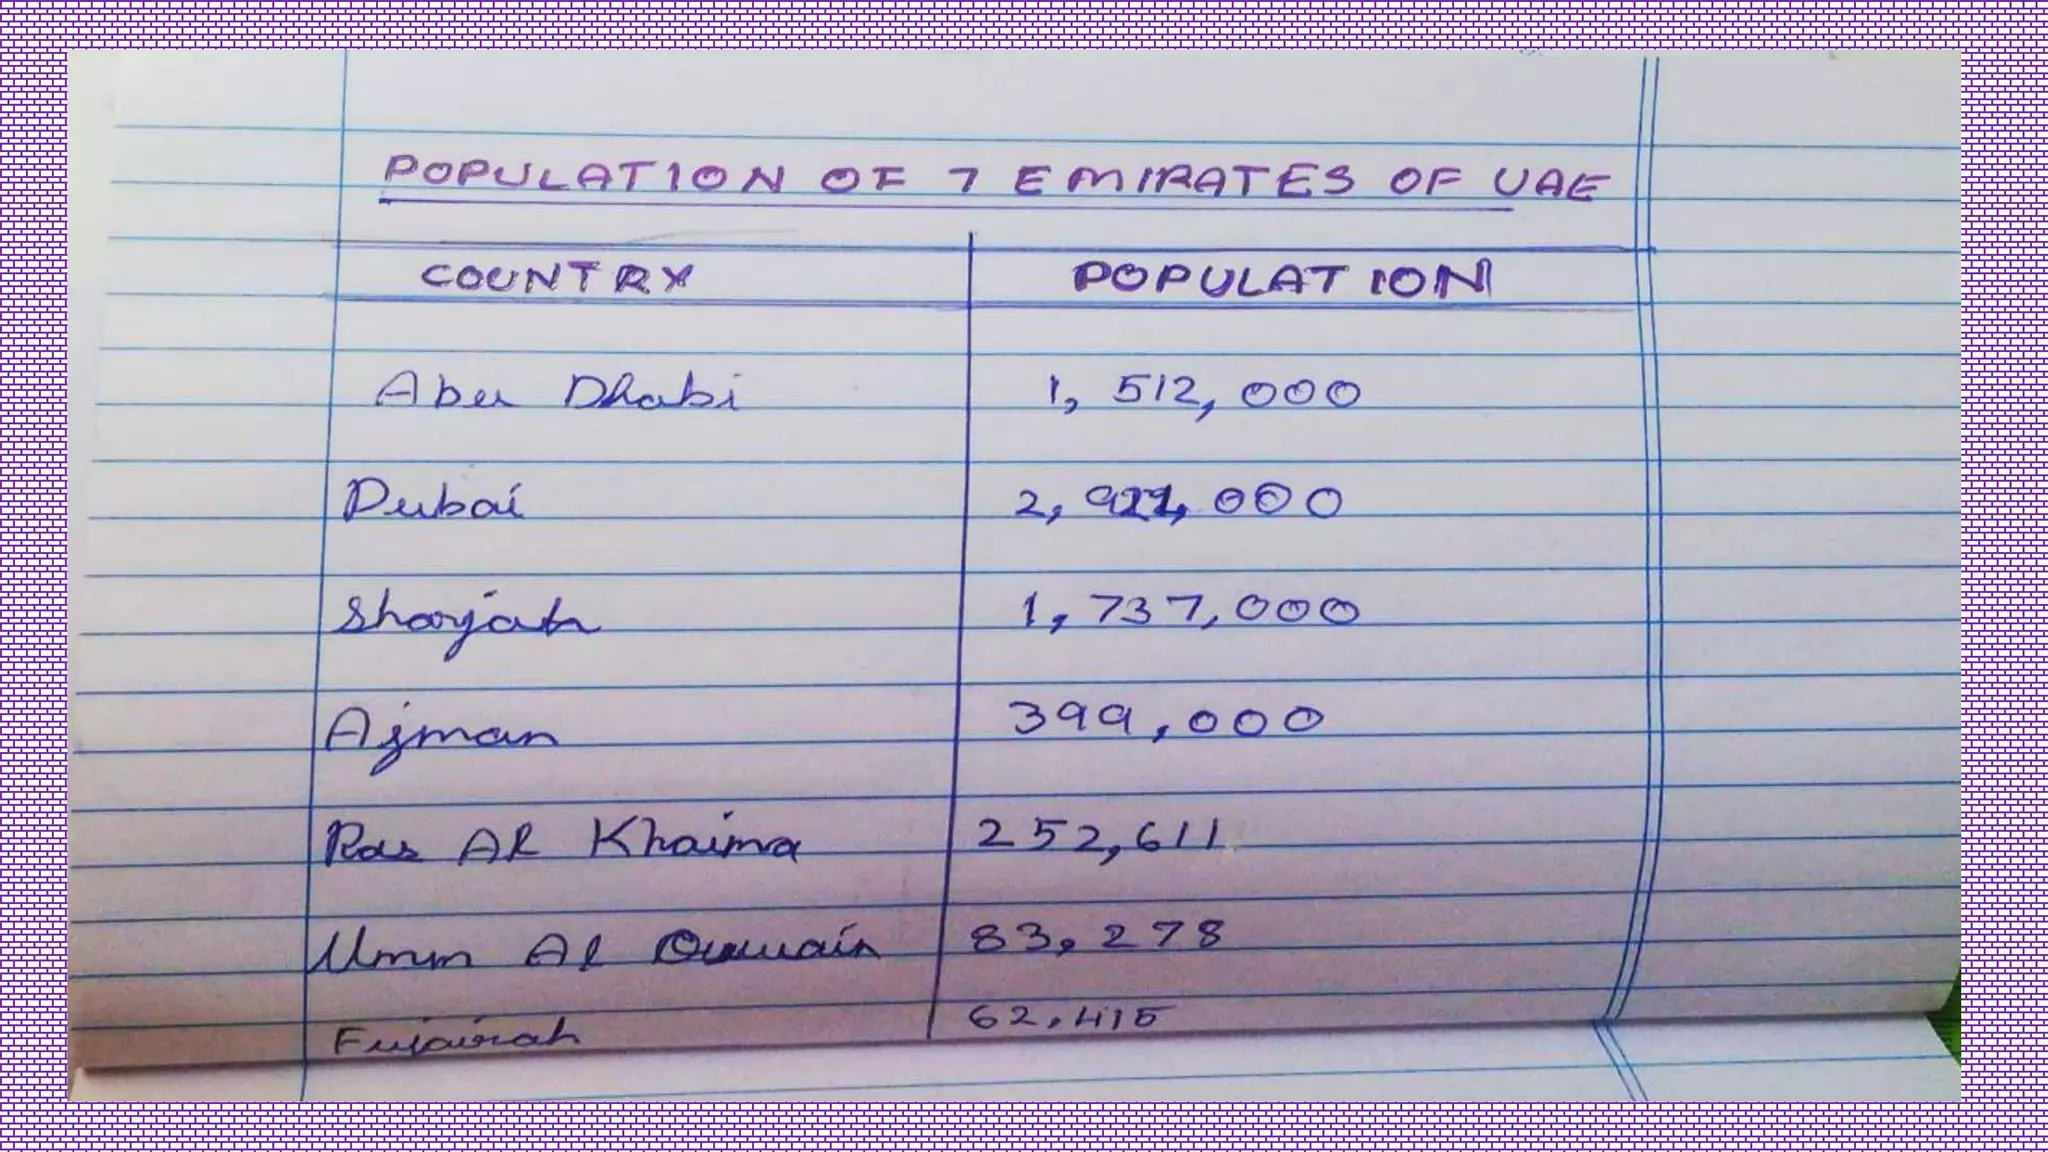 POPULATION OF 7 EMIRATES OF UAE
COUNTRY POPULATION
Abu Dhabi 1, 512, 000
Dubai 2, 921, 000
Sharjah 1, 737, 000
Ajman 399, 000
Ras Al Khaima 252,611
Umm Al Quwain 83, 278
Fujairah 62, 415